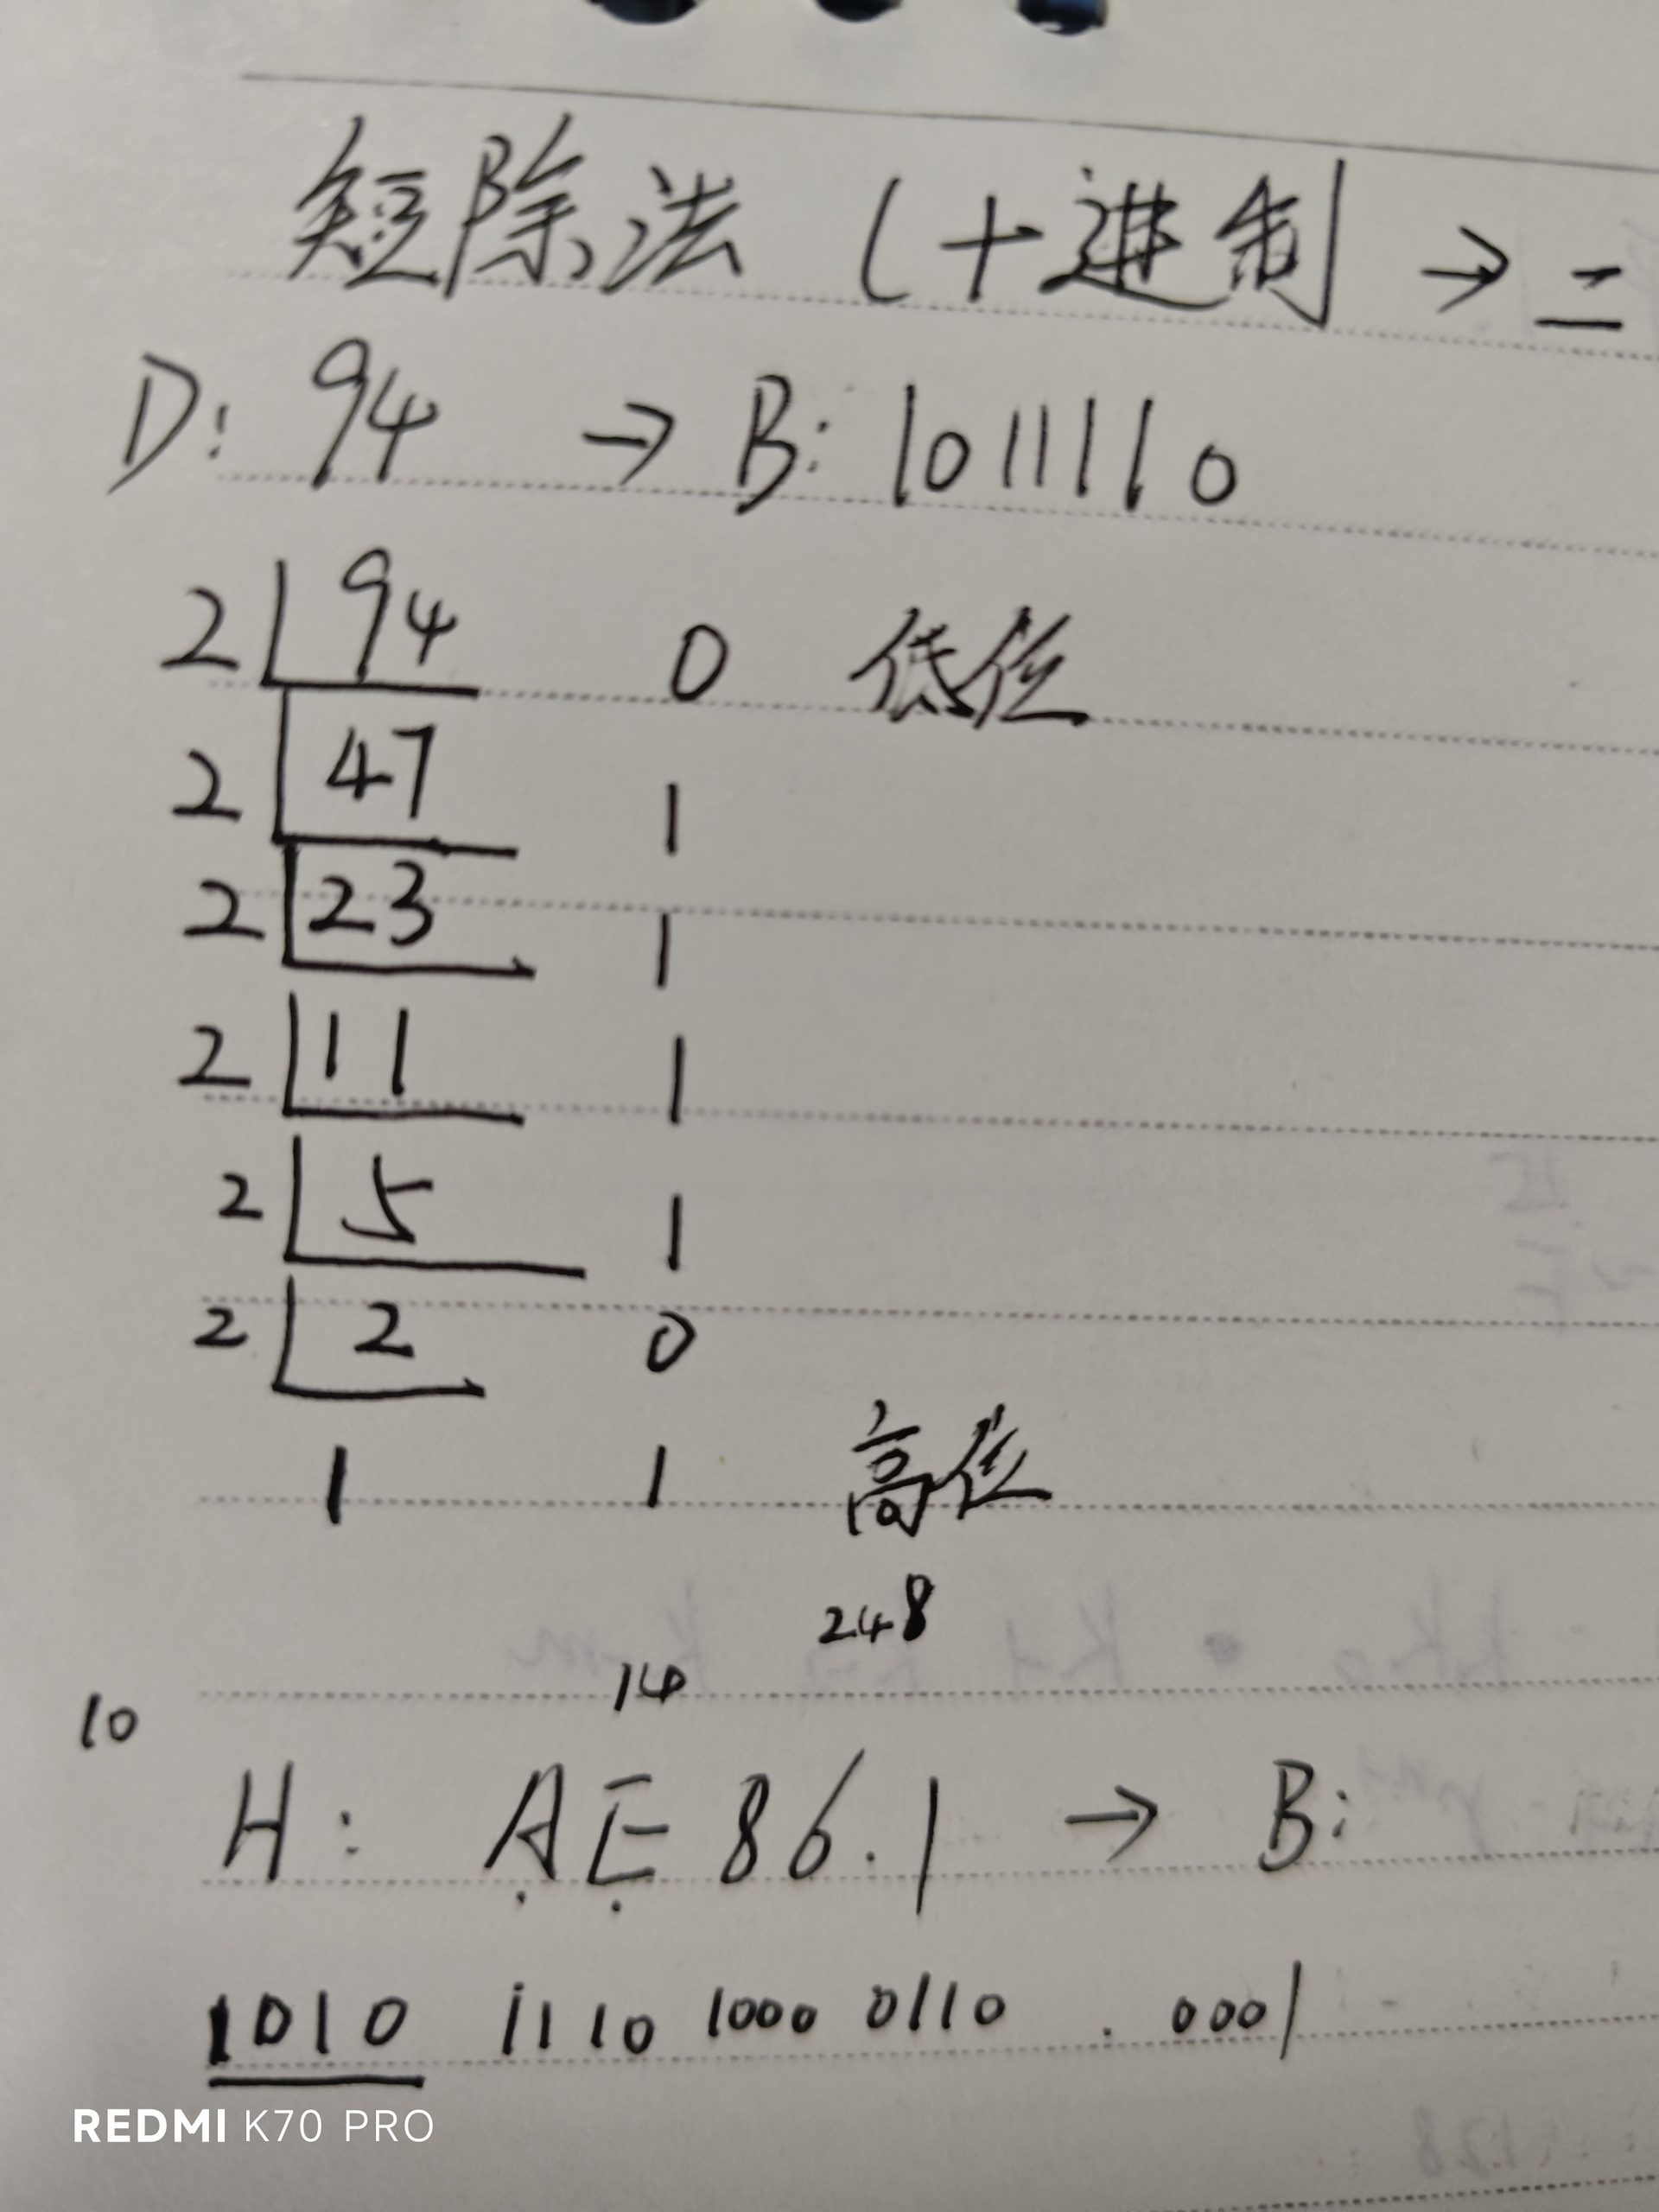 短除法 (十进制 → 二
D: 94 → B: 1011110
2 94 0 低位
2 47 1
2 23 1
2 11 1
2 5 1
2 2 0
1 1 高位
248
14
10
H: AE86.1 → B:
1010 1110 1000 0110 . 0001
REDMI K70 PRO